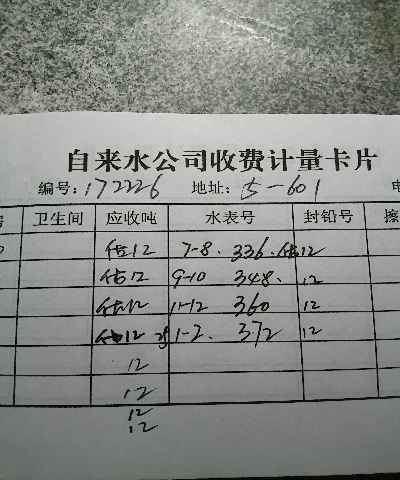 自来水公司收费计量卡片
编号: 172226 地址: 5-601 电
卫生间 应收吨 水表号 封铅号 擦
估12 7-8. 336. 估12
估12 9-10 348. 12
估12 11-12 360 12
估12 1-2. 372 12
12
12
12
12